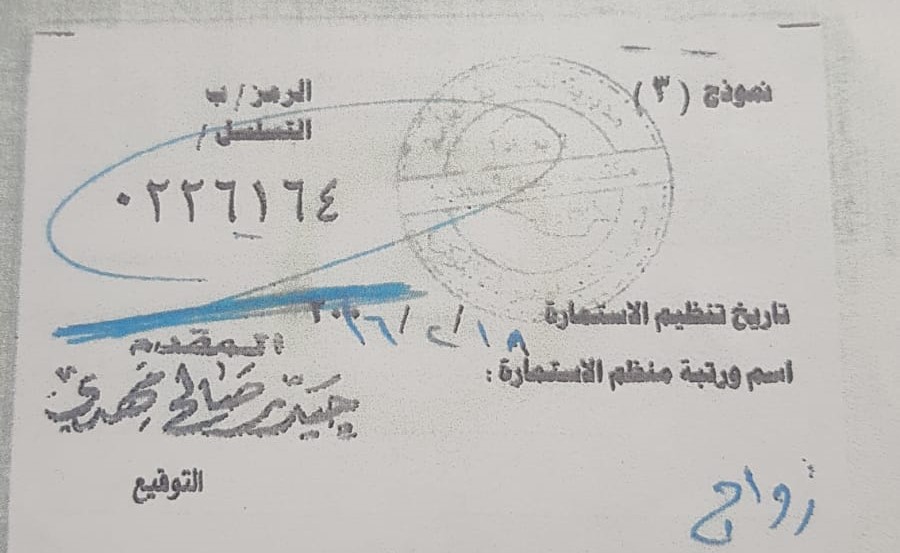 نموذج (٣)
الرمز/ ب
التسلسل/
٠٢٢٦١٦٤
تاريخ تنظيم الاستمارة ١٨/٢/
اسم ورتبة منظم الاستمارة :
المقدم
حيدر صالح مهدي
التوقيع
زواج